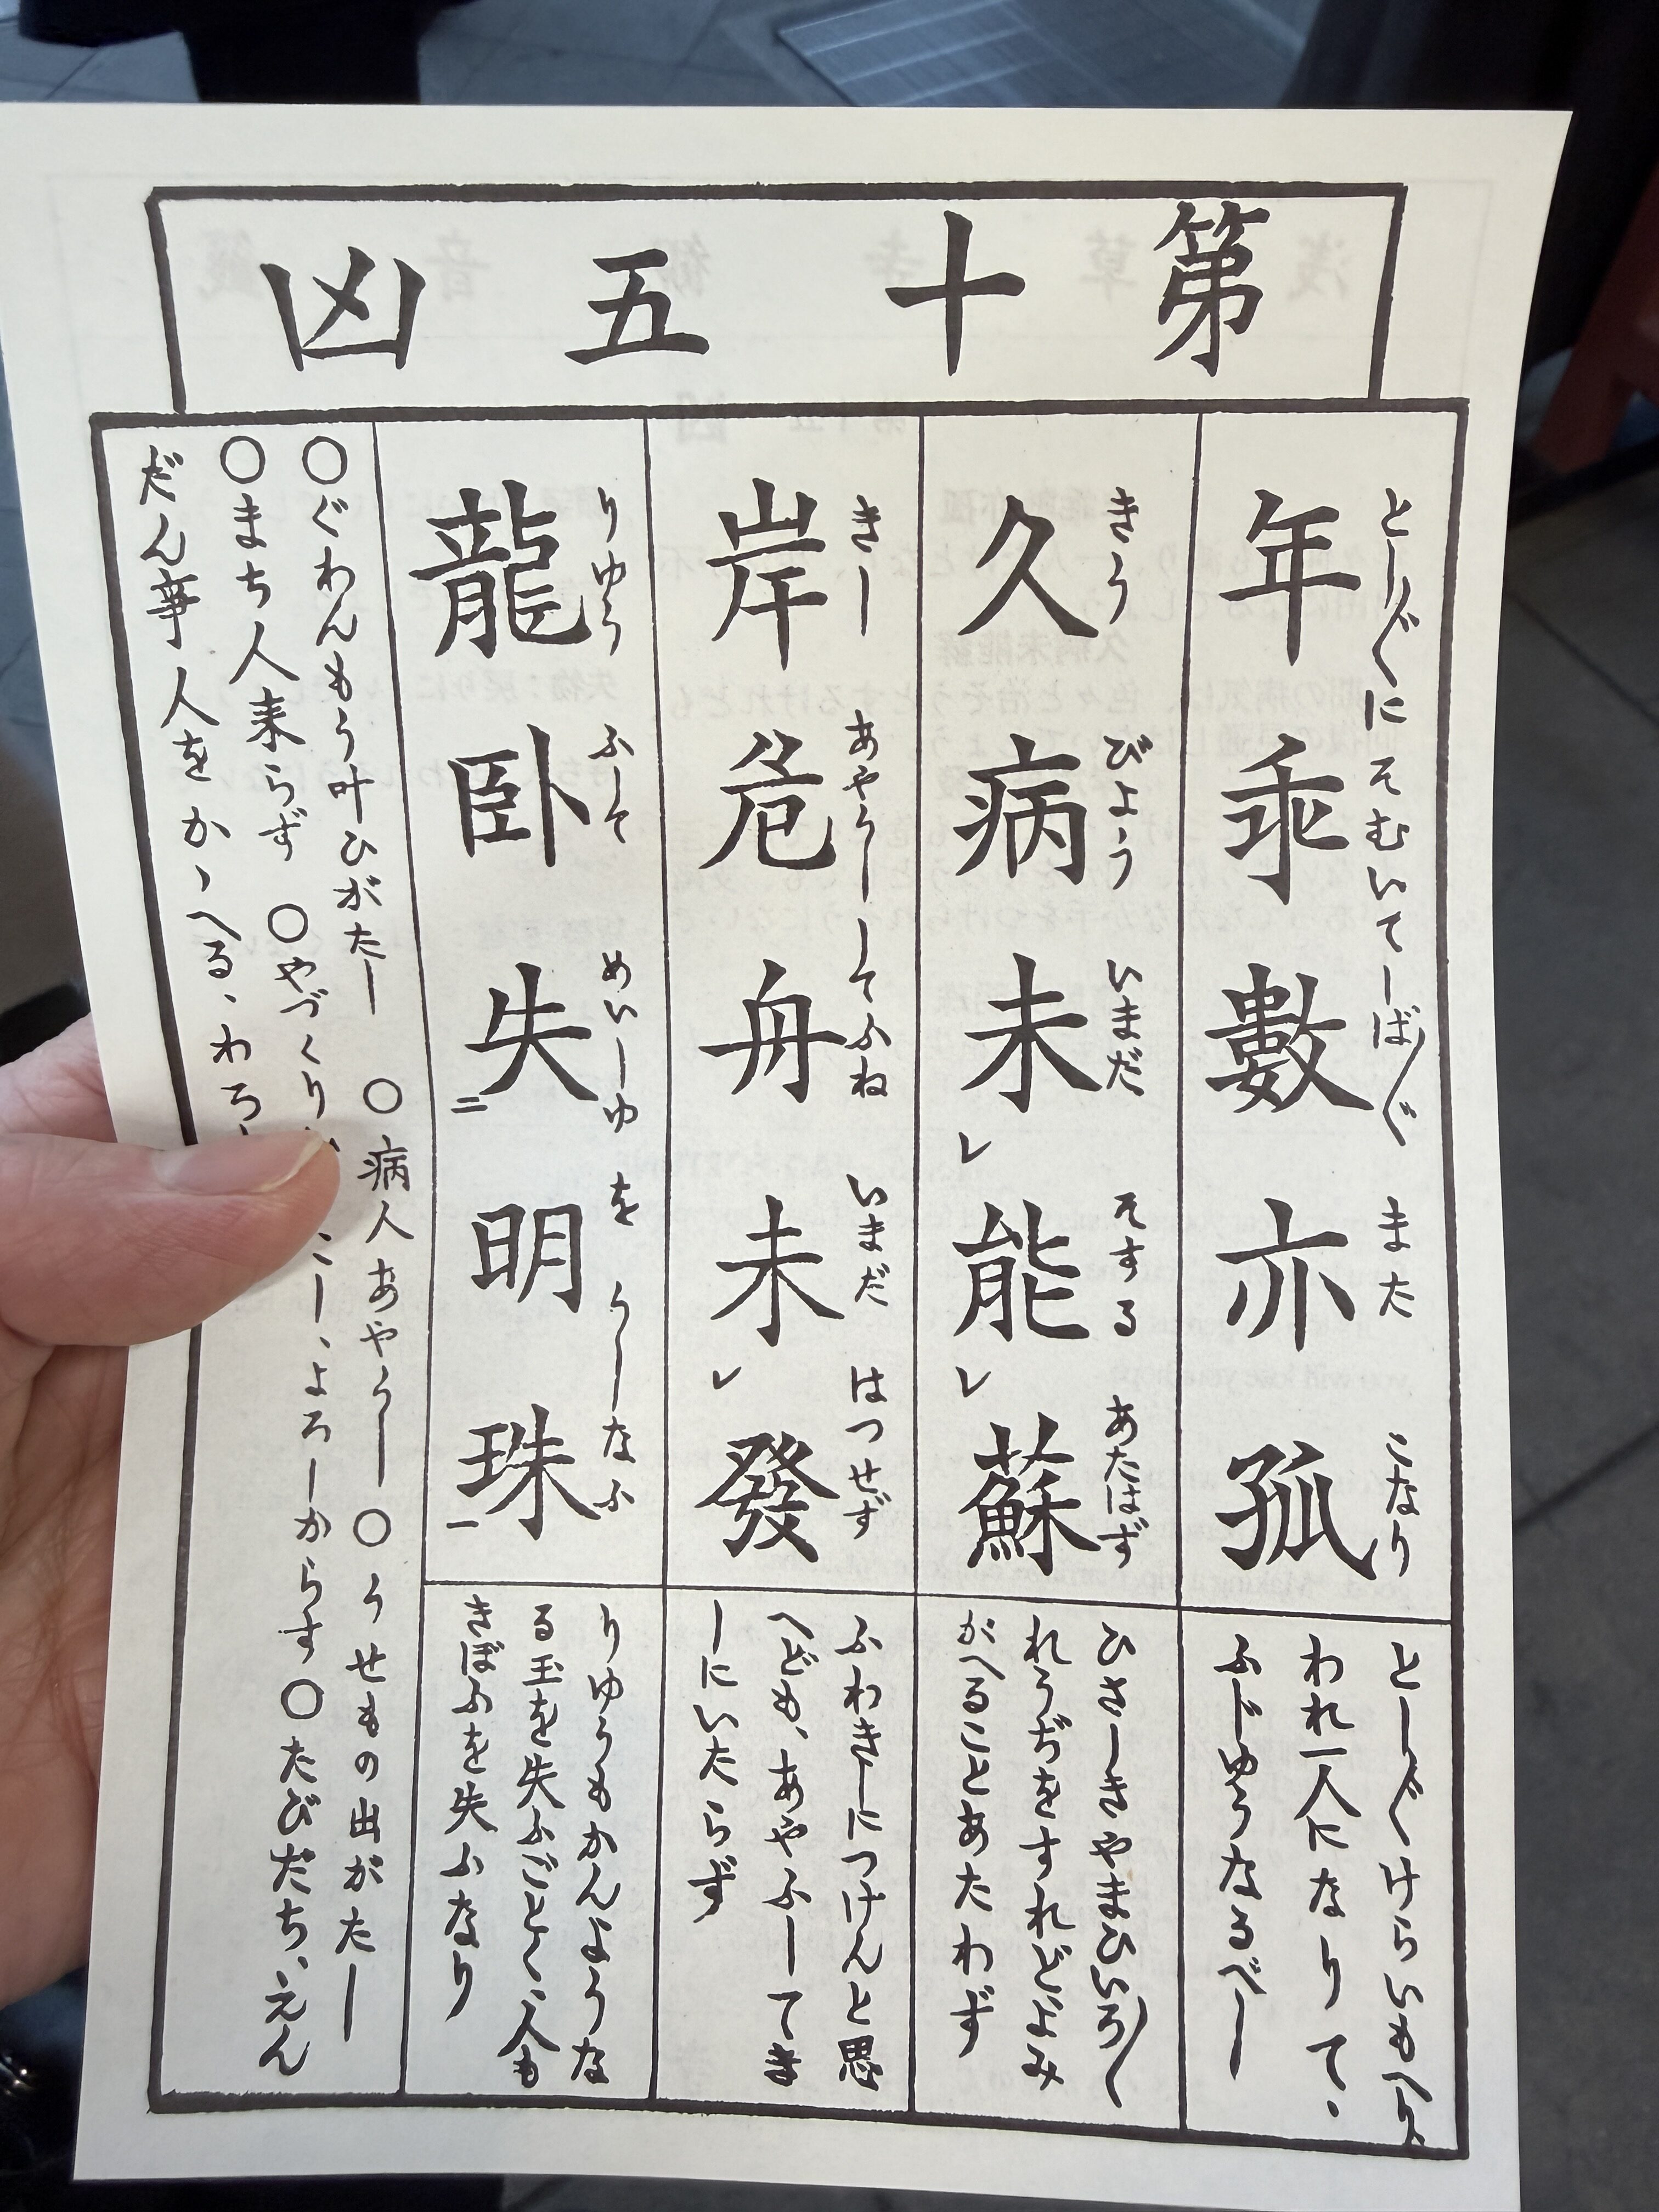 第十五凶
とし〴〵にそむいてしば〴〵またこなり
年乖數亦孤
とし〴〵けらいもへり、
われ一人になりて、
ふじゆうなるべし
きうびよういまだそするあたはず
久病未レ能レ蘇
ひさしきやまひいろ〳〵
れうぢをすれどよみ
がへることあたわず
きしあやうししてふねいまだはつせず
岸危舟未レ發
ふねきしにつけんと思
へども、あやふしてき
しにいたらず
りゆうふしてめいしゆをうしなふ
龍卧失二明珠一
りゆうもかんような
る玉を失ふごとく、人も
きぼふを失ふなり
○ぐわんもう叶ひがたし ○病人あやうし ○うせもの出がたし
○まち人来らず ○やづくり し、よろしからす ○たびだち、えん
だん事人をかゝへる、わろ